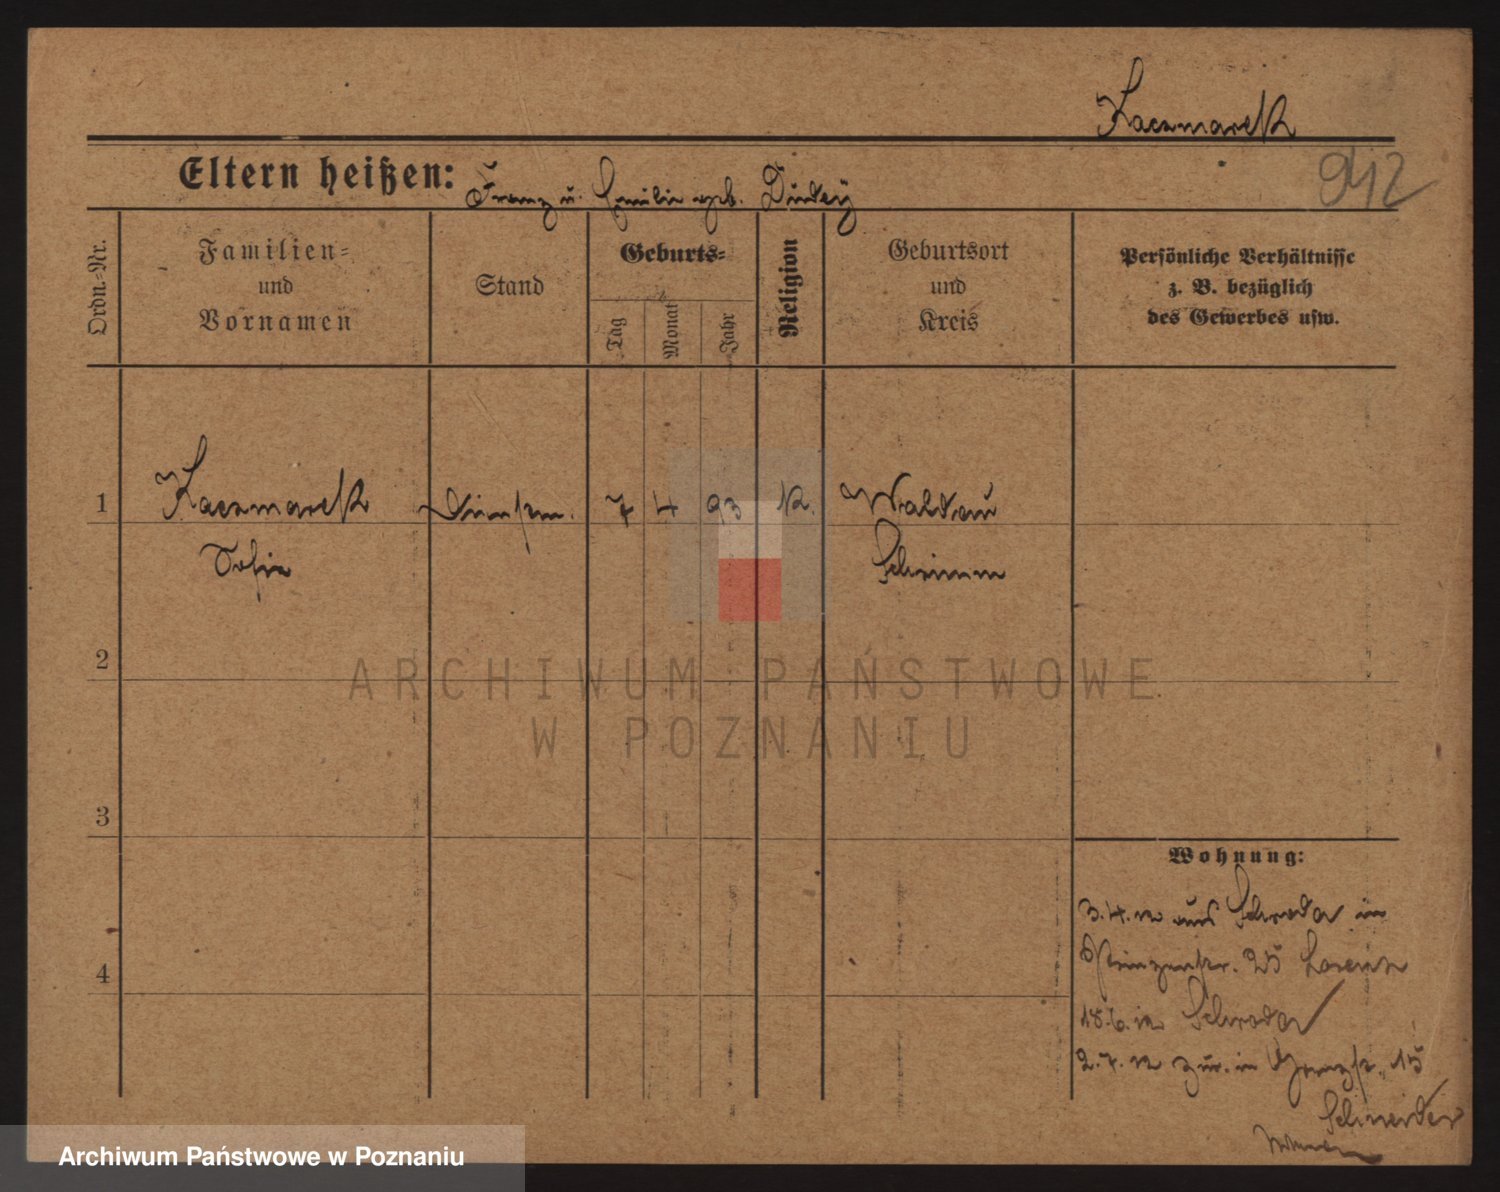 Kaczmarek
942
Eltern heißen: Franz u. Emilie geb. Dudey
Ordn.-Nr.
Familien-
und
Vornamen
Stand
Geburts-
Tag
Monat
Jahr
Religion
Geburtsort
und
Kreis
Persönliche Verhältnisse
z. B. bezüglich
des Gewerbes usw.
1 Kaczmarek 7 4 93 K. Waldau
Sofie Schrimm
2
ARCHIWUM PAŃSTWOWE
W POZNANIU
3
Wohnung:
3.4.12 aus Schroda in
Prinzenstr. 25 Lorenz
4
18.6.12 Schroda
2.7.12 zur. in 15
Schneider
Archiwum Państwowe w Poznaniu